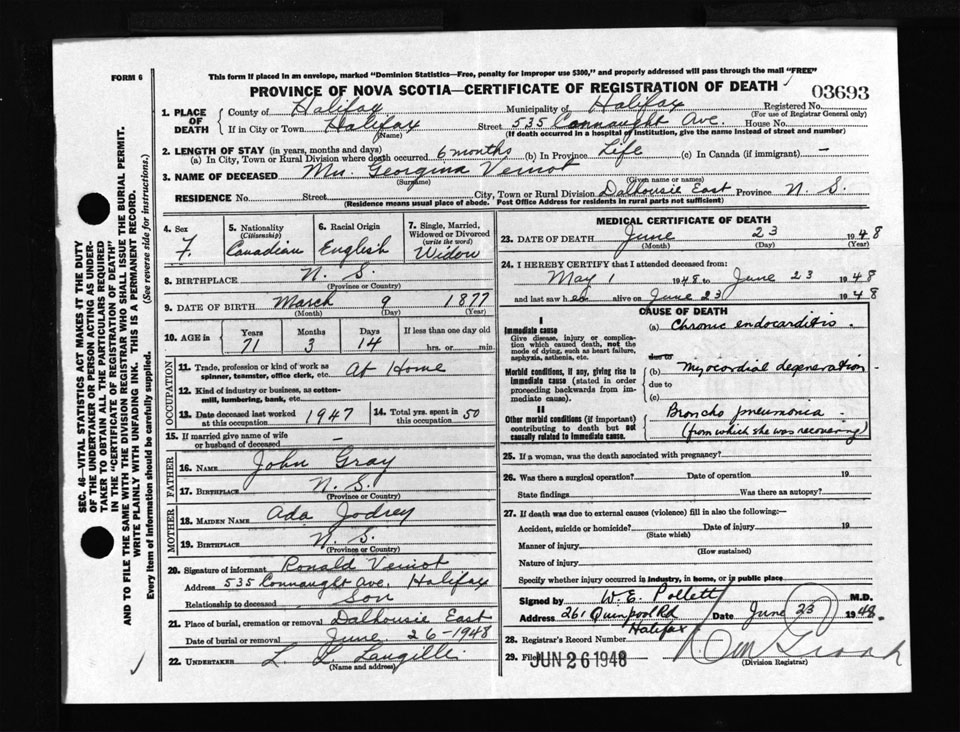 FORM 6
This form if placed in an envelope, marked "Dominion Statistics—Free, penalty for improper use $300," and properly addressed will pass through the mail "FREE"
PROVINCE OF NOVA SCOTIA—CERTIFICATE OF REGISTRATION OF DEATH
03693
1. PLACE OF DEATH
County of Halifax Municipality of Halifax Registered No.
(For use of Registrar General only)
If in City or Town Halifax Street 535 Connaught Ave. House No.
(Name) (If death occurred in a hospital of institution, give the name instead of street and number)
2. LENGTH OF STAY (in years, months and days)
(a) In City, Town or Rural Division where death occurred 6 months (b) In Province Life (c) In Canada (if immigrant) —
3. NAME OF DECEASED Mrs. Georgina Veinot
(Surname) (Given name or names)
RESIDENCE No. Street City, Town or Rural Division Dalhousie East Province N. S.
(Residence means usual place of abode. Post Office Address for residents in rural parts not sufficient)
4. Sex F.
5. Nationality (Citizenship) Canadian
6. Racial Origin English
7. Single, Married, Widowed or Divorced (write the word) Widow
8. BIRTHPLACE N. S.
(Province or Country)
9. DATE OF BIRTH March 9 1877
(Month) (Day) (Year)
10. AGE in Years Months Days If less than one day old
71 3 14 hrs. or min.
OCCUPATION
11. Trade, profession or kind of work as spinner, teamster, office clerk, etc. At Home
12. Kind of industry or business, as cotton-mill, lumbering, bank, etc.
13. Date deceased last worked at this occupation 1947
14. Total yrs. spent in this occupation 50
15. If married give name of wife or husband of deceased —
FATHER
16. NAME John Gray
17. BIRTHPLACE N. S.
(Province or Country)
MOTHER
18. MAIDEN NAME Ada Jodrey
19. BIRTHPLACE N. S.
(Province or Country)
20. Signature of informant Ronald Veinot
Address 535 Connaught Ave. Halifax
Relationship to deceased Son
21. Place of burial, cremation or removal Dalhousie East
Date of burial or removal June 26-1948
22. UNDERTAKER L. L. Langille
(Name and address)
MEDICAL CERTIFICATE OF DEATH
23. DATE OF DEATH June 23 1948
(Month) (Day) (Year)
24. I HEREBY CERTIFY that I attended deceased from:
May 1 1948 to June 23 1948
and last saw her alive on June 23 1948
CAUSE OF DEATH
I
Immediate cause
Give disease, injury or complication which caused death, not the mode of dying, such as heart failure, asphyxia, asthenia, etc.
(a) Chronic endocarditis.
due to
Morbid conditions, if any, giving rise to immediate cause (stated in order proceeding backwards from immediate cause).
(b) Myocordial degeneration
due to
(c)
II
Other morbid conditions (if important) contributing to death but not causally related to immediate cause.
Broncho pneumonia
(from which she was recovering)
25. If a woman, was the death associated with pregnancy?
26. Was there a surgical operation? Date of operation 19
State findings Was there an autopsy?
27. If death was due to external causes (violence) fill in also the following:—
Accident, suicide or homicide? Date of injury 19
(State which)
Manner of injury
(How sustained)
Nature of injury
Specify whether injury occurred in industry, in home, or in public place
Signed by W. E. Pollett M.D.
Address 261 Quinpool Rd Halifax Date June 23 1948
28. Registrar's Record Number
29. Filed JUN 26 1948
(Division Registrar)
SEC. 46—VITAL STATISTICS ACT MAKES IT THE DUTY
OF THE UNDERTAKER OR PERSON ACTING AS UNDER-
TAKER TO OBTAIN ALL THE PARTICULARS REQUIRED
IN THE "CERTIFICATE OF REGISTRATION OF DEATH"
AND TO FILE THE SAME WITH THE DIVISION REGISTRAR WHO SHALL ISSUE THE BURIAL PERMIT.
WRITE PLAINLY WITH UNFADING INK. THIS IS A PERMANENT RECORD.
Every item of information should be carefully supplied. (See reverse side for instructions.)